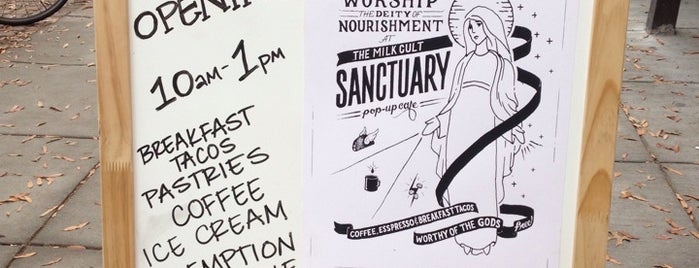 10AM-1PM
BREAKFAST
TACOS
PASTRIES
COFFEE
ICE CREAM
WORSHIP
THE DEITY OF
NOURISHMENT
AT
THE MILK CULT
SANCTUARY
pop-up cafe
COFFEE, ESSPRESSO & BREAKFAST TACOS
WORTHY OF THE GODS